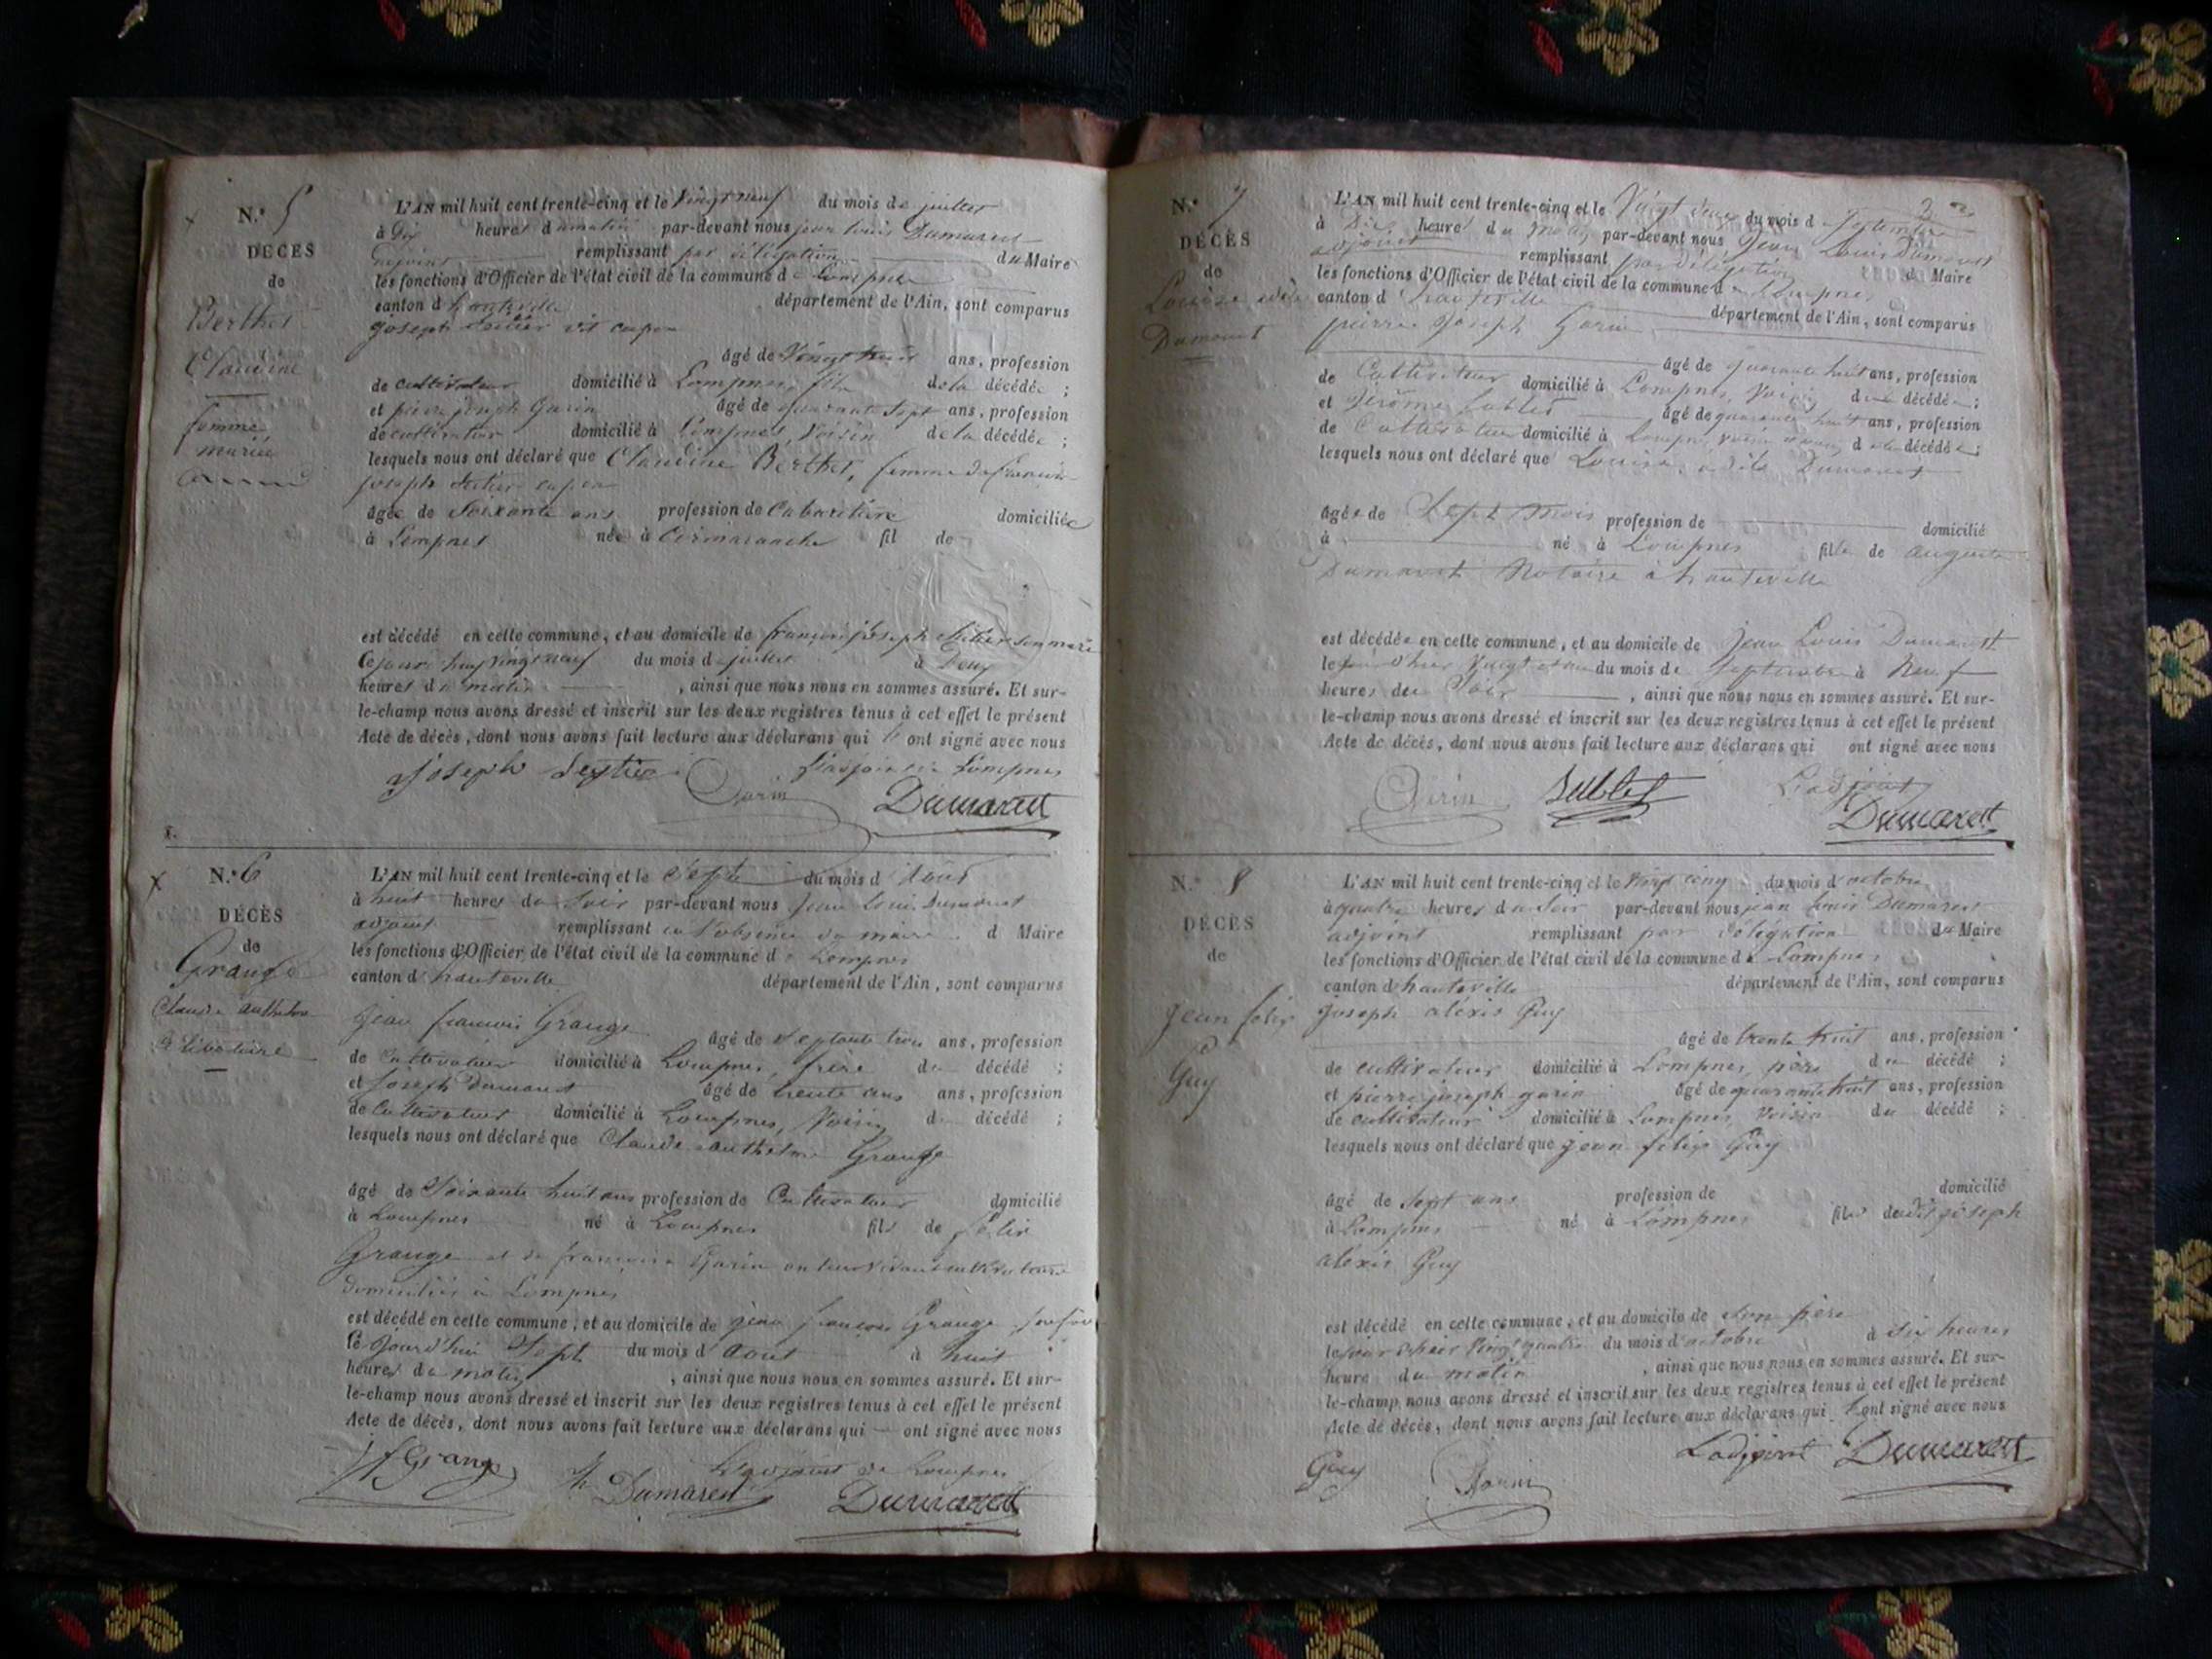 N.° 5
DÉCÈS
de
Berthet
Claudine
femme
mariée
L'AN mil huit cent trente-cinq et le vingt neuf du mois de juillet
à dix heures du matin par-devant nous jean louis Dumarest
adjoint remplissant par délégation du Maire
les fonctions d'Officier de l'état civil de la commune de Lompnes
canton d'hauteville département de l'Ain, sont comparus
joseph
âgé de Vingt huit ans, profession
de cultivateur domicilié à Lompnes, fils de la décédée ;
et pierre joseph Garin âgé de quarante sept ans, profession
de cultivateur domicilié à Lompnes, voisin de la décédée ;
lesquels nous ont déclaré que Claudine Berthet, femme de françois
joseph
âgée de Soixante ans profession de Cabaretière domiciliée
à Lompnes née à Cormaranche fil de
est décédé en cette commune, et au domicile de françois joseph son mari
cejourd'huy vingt neuf du mois de juillet à Deux
heures du matin , ainsi que nous nous en sommes assuré. Et sur-
le-champ nous avons dressé et inscrit sur les deux registres tenus à cet effet le présent
Acte de décès, dont nous avons fait lecture aux déclarans qui ont signé avec nous
joseph l'adjoint de Lompnes
Garin Dumarest
N.° 6
DÉCÈS
de
Grange
Claude anthelme
célibataire
L'AN mil huit cent trente-cinq et le Sept du mois d'Août
à huit heures du Soir par-devant nous jean Louis Dumarest
adjoint remplissant en l'absence du maire d Maire
les fonctions d'Officier de l'état civil de la commune de Lompnes
canton d'hauteville département de l'Ain, sont comparus
jean françois Grange
âgé de Septante trois ans, profession
de Cultivateur domicilié à Lompnes, frère du décédé ;
et Joseph Dumarest âgé de trente ans ans, profession
de Cultivateur domicilié à Lompnes, Voisin du décédé ;
lesquels nous ont déclaré que Claude anthelme Grange
âgé de Soixante huit ans profession de Cultivateur domicilié
à Lompnes né à Lompnes fils de félix
Grange et de françoise Garin en leur vivant cultivateurs
domiciliés à Lompnes
est décédé en cette commune, et au domicile de jean françois Grange son frère
Cejourd'hui Sept du mois d'août à huit
heures du matin , ainsi que nous nous en sommes assuré. Et sur-
le-champ nous avons dressé et inscrit sur les deux registres tenus à cet effet le présent
Acte de décès, dont nous avons fait lecture aux déclarans qui — ont signé avec nous
jf Grange L'adjoint de Lompnes
Dumarest Dumarest
N.° 7
DÉCÈS
de
Louise adèle
Dumarest
L'AN mil huit cent trente-cinq et le Vingt deux du mois d Septembre
à Dix heures du matin par-devant nous Jean Louis Dumarest
adjoint remplissant par délégation d Maire
les fonctions d'Officier de l'état civil de la commune de Lompnes
canton d'hauteville département de l'Ain, sont comparus
pierre Joseph Garin
âgé de quarante huit ans, profession
de Cultivateur domicilié à Lompnes, Voisin de décédée ;
et Jérôme Sublet âgé de quarante huit ans, profession
de Cultivateur domicilié à Lompnes, voisin de la décédée ;
lesquels nous ont déclaré que Louise adèle Dumarest
âgée de Sept mois profession de domicilié
à né à Lompnes fille de auguste
Dumarest Notaire à hauteville
est décédée en cette commune, et au domicile de Jean Louis Dumarest
le jour d'hier Vingt et un du mois de Septembre à Neuf
heures du Soir , ainsi que nous nous en sommes assuré. Et sur-
le-champ nous avons dressé et inscrit sur les deux registres tenus à cet effet le présent
Acte de décès, dont nous avons fait lecture aux déclarans qui ont signé avec nous
Garin Sublet L'adjoint
Dumarest
N.° 8
DÉCÈS
de
Jean félix
Guy
L'AN mil huit cent trente-cinq et le Vingt cinq du mois d'octobre
à quatre heures du Soir par-devant nous jean louis Dumarest
adjoint remplissant par délégation du Maire
les fonctions d'Officier de l'état civil de la commune de Lompnes
canton d'hauteville département de l'Ain, sont comparus
joseph aléxis Guy
âgé de trente huit ans, profession
de cultivateur domicilié à Lompnes, père du décédé ;
et pierre joseph garin âgé de quarante huit ans, profession
de cultivateur domicilié à Lompnes, Voisin du décédé ;
lesquels nous ont déclaré que jean félix Guy
âgé de Sept ans profession de domicilié
à Lompnes né à Lompnes fils dudit joseph
aléxis Guy
est décédé en cette commune, et au domicile de Son père
le jour d'hier Vingt quatre du mois d'octobre à dix heures
heure du matin , ainsi que nous nous en sommes assuré. Et sur-
le-champ nous avons dressé et inscrit sur les deux registres tenus à cet effet le présent
Acte de décès, dont nous avons fait lecture aux déclarans qui ont signé avec nous
Guy Garin Ladjoint Dumarest